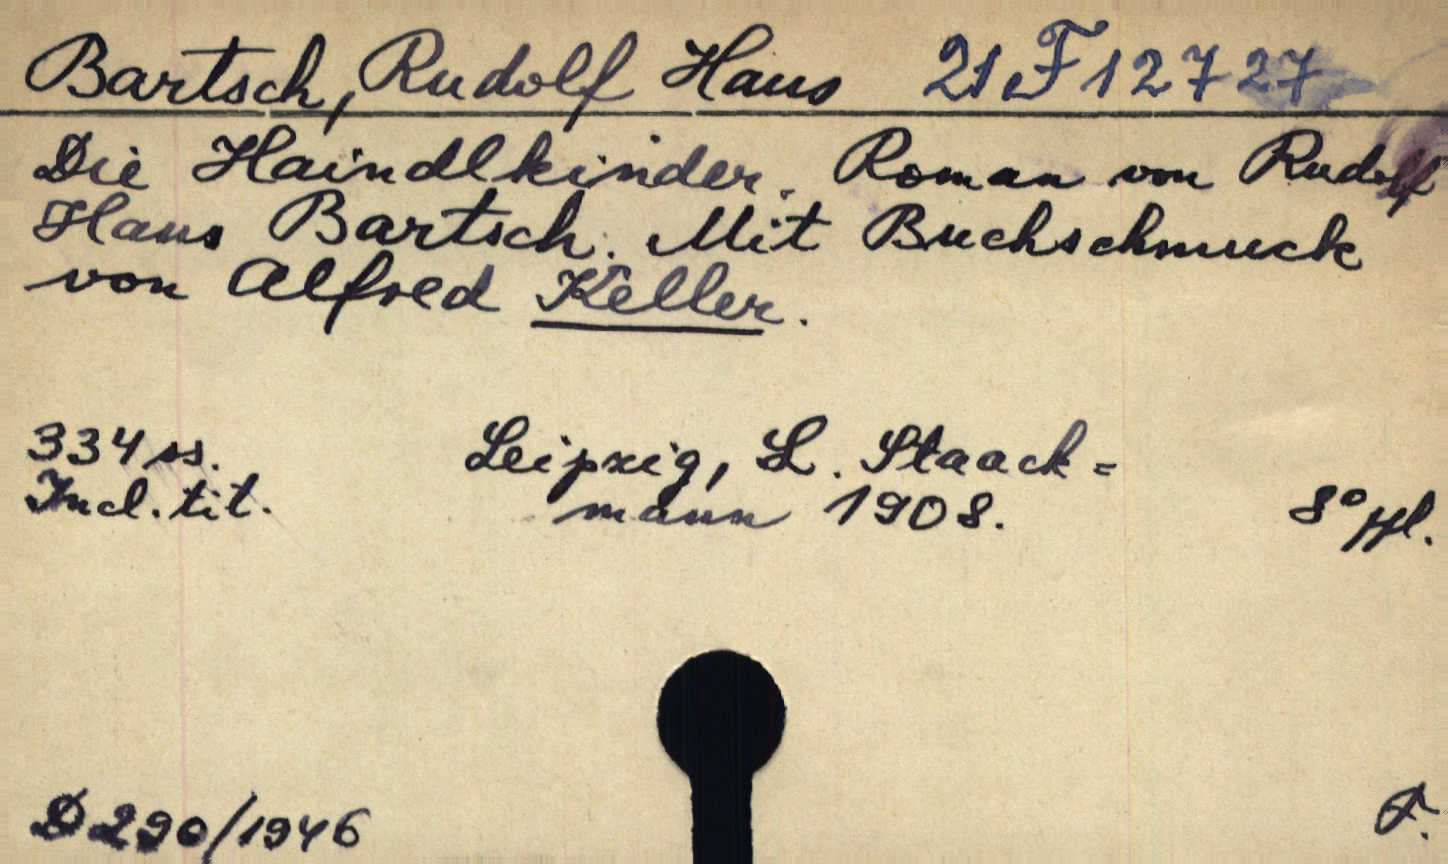 Bartsch, Rudolf Hans 21 F 12727
Die Haindlkinder. Roman von Rudolf
Hans Bartsch. Mit Buchschmuck
von Alfred Keller.
334 ss. Leipzig, L. Staack=
Incl. tit. mann 1908. 8° ppl.
D 290/1946 F.